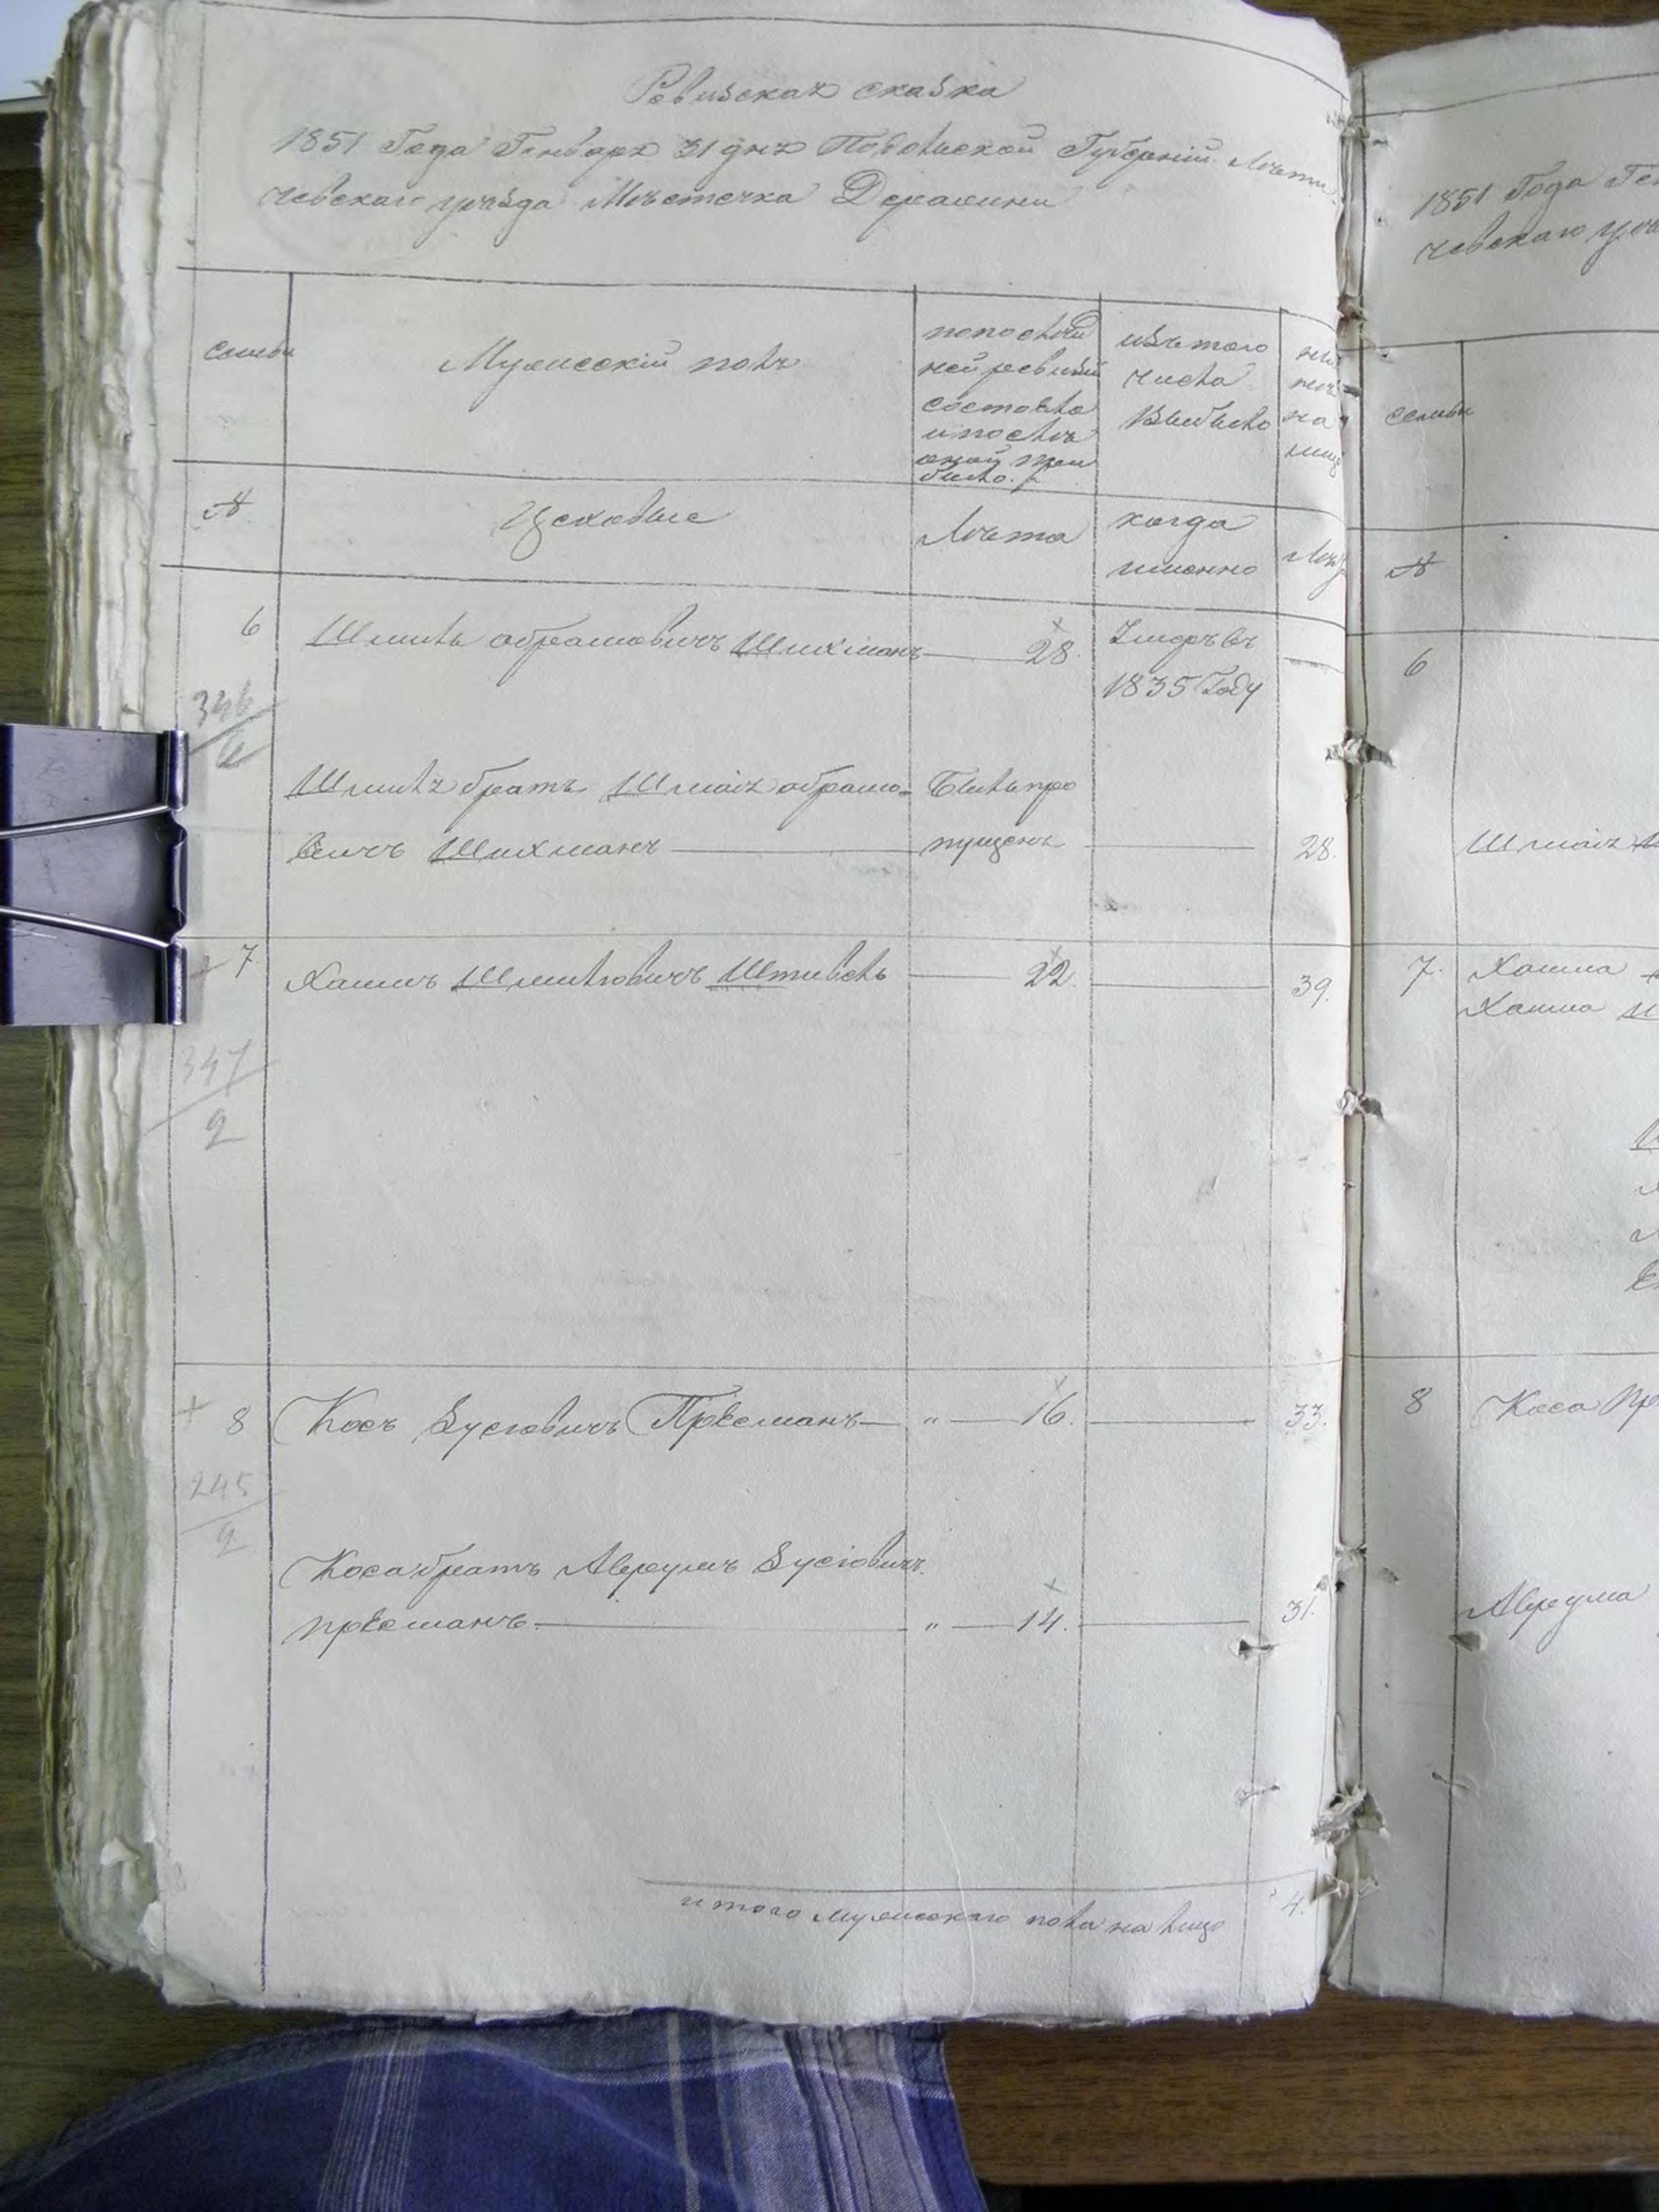 Ревизская сказка
1851 Года Генваря 31 дня Подольской Губерніи Лѣти
чевскаго уѣзда Мѣстечка Деражни
семьи
Мужескій полъ
попослѣд
ней ревизіи
состояло
и послѣ
оной при
было.
изъ того
числа
Выбыло
на
лицо
№
Цеховые
Лѣта
когда
именно
Лѣта
6
Шмиль абрамовичъ Шихманъ
28.
Умеръ въ
1835 Году
346/6
Шмиля братъ Шмаія абрамо-
вичъ Шихманъ
Былъ про
пущенъ
28.
7
Хаимъ Шмиліовичъ Штивель
22.
39.
347/2
8
Косъ Зусіовичъ Прѣсманъ
" 16.
33.
245/2
Коса братъ Аврумъ Зусіовичъ
прѣсманъ
" 14.
31.
итого мужескаго пола на лицо
4.
1851 Года Ген
чевскаго уѣз
семьи
№
6
Шмаія
7. Хаима
Хаима
8 Коса пр
Аврума